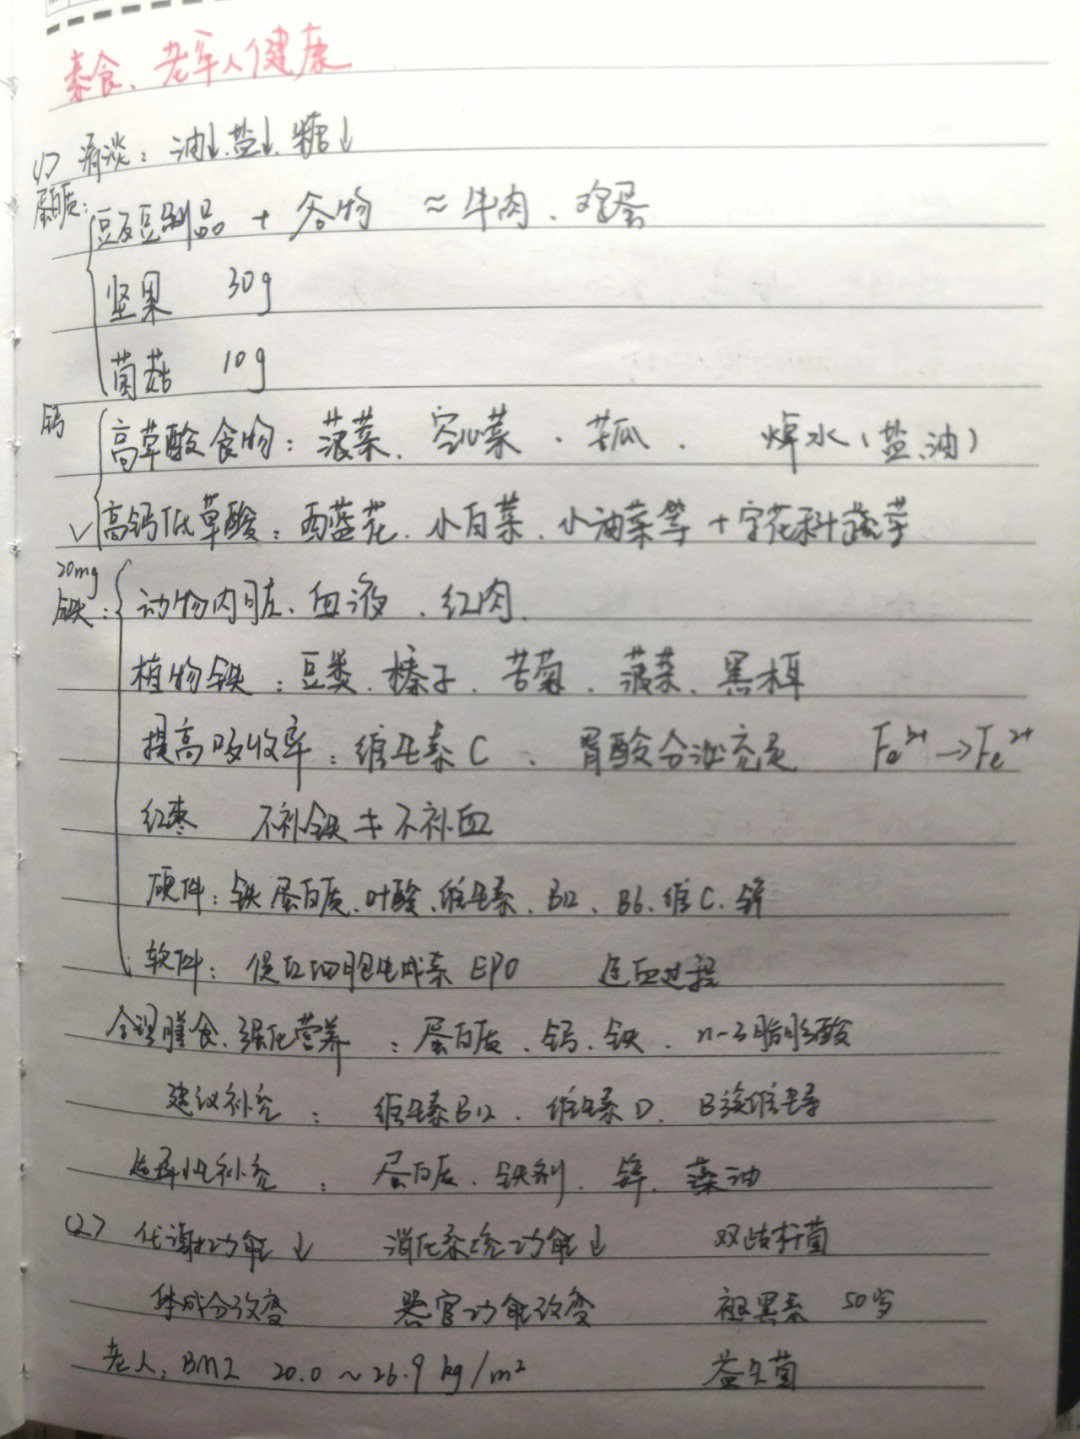 素食、老年人健康
(1) 清淡：油↓.盐↓.糖↓
蛋白质：豆及豆制品 + 谷物 ≈ 牛肉、鸡蛋
坚果 30g
菌菇 10g
钙 高草酸食物：菠菜、空心菜、苦瓜. 焯水(盐、油)
✓高钙低草酸：西蓝花、小白菜、小油菜等 + 十字花科蔬菜
20mg
铁：动物内脏、血液、红肉.
植物铁：豆类、榛子、苦菊、菠菜、黑木耳
提高吸收率：维生素C、胃酸分泌充足 Fe³⁺→Fe²⁺
红枣 不补铁 ≠ 不补血
硬件：铁 蛋白质、叶酸、维生素、B12、B6、维C、锌
软件：促红细胞生成素 EPO 造血过程
合理膳食、强化营养：蛋白质、钙、铁、n-3脂肪酸
建议补充：维生素B12、维生素D、B族维生素
选择性补充：蛋白质、铁剂、锌、藻油
(2) 代谢功能↓ 消化系统功能↓ 双歧杆菌
体成分改变 器官功能改变 褪黑素 50岁
老人：BMI 20.0～26.9 kg/m² 益生菌